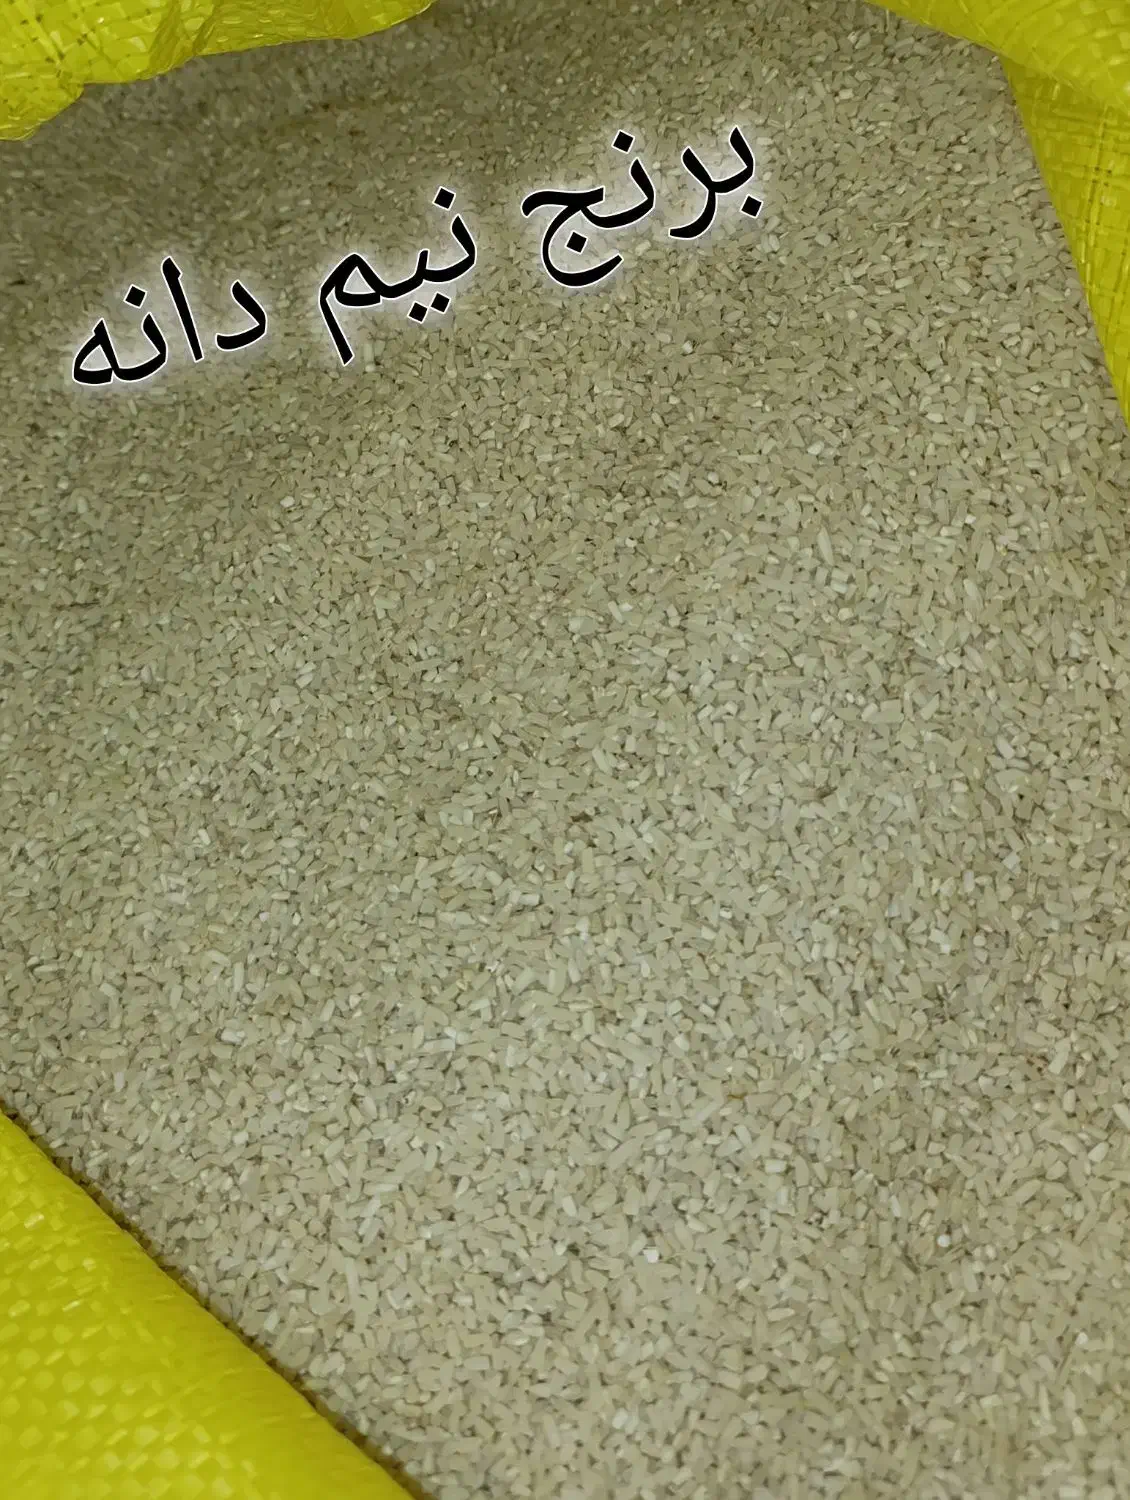 برنج نیم دانه